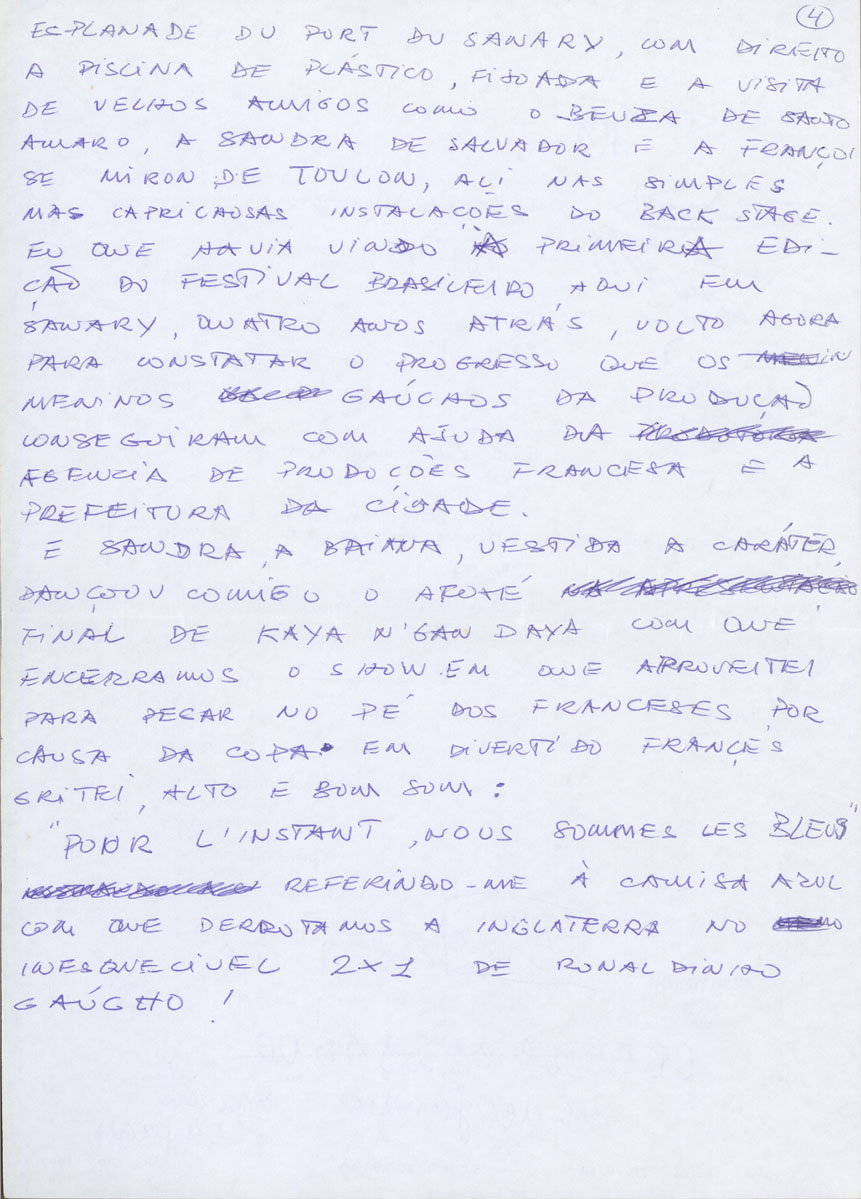 4
ESPLANADE DU PORT DU SANARY, COM DIREITO
A PISCINA DE PLÁSTICO, FIJOADA E A VISITA
DE VELHOS AMIGOS COMO O BEUZA DE SANTO
AMARO, A SANDRA DE SALVADOR E A FRANÇOI
SE MIRON DE TOULON, ALI NAS SIMPLES
MAS CAPRICHOSAS INSTALAÇÕES DO BACK STAGE.
EU QUE HAVIA VINDO À PRIMEIRA EDI-
ÇÃO DO FESTIVAL BRASILEIRO AQUI EM
SANARY, QUATRO ANOS ATRÁS, VOLTO AGORA
PARA CONSTATAR O PROGRESSO QUE OS
MENINOS GAÚCHOS DA PRODUÇÃO
CONSEGUIRAM COM AJUDA DA
AGENZIA DE PRODUÇÕES FRANCESA E A
PREFEITURA DA CIDADE.
E SANDRA, A BAIANA, VESTIDA A CARÁTER,
DANÇOU COMIGO O AFOXÉ
FINAL DE KAYA N'GAN DAYA COM QUE
ENCERRAMOS O SHOW EM QUE APROVEITEI
PARA PEGAR NO PÉ DOS FRANCESES POR
CAUSA DA COPA. EM DIVERTIDO FRANÇÊS
GRITEI, ALTO E BOM SOM:
"POUR L'INSTANT, NOUS SOMMES LES BLEUS"
REFERINDO-ME À CAMISA AZUL
COM QUE DERROTAMOS A INGLATERRA NO
INESQUECÍVEL 2X1 DE RONALDINHO
GAÚCHO!